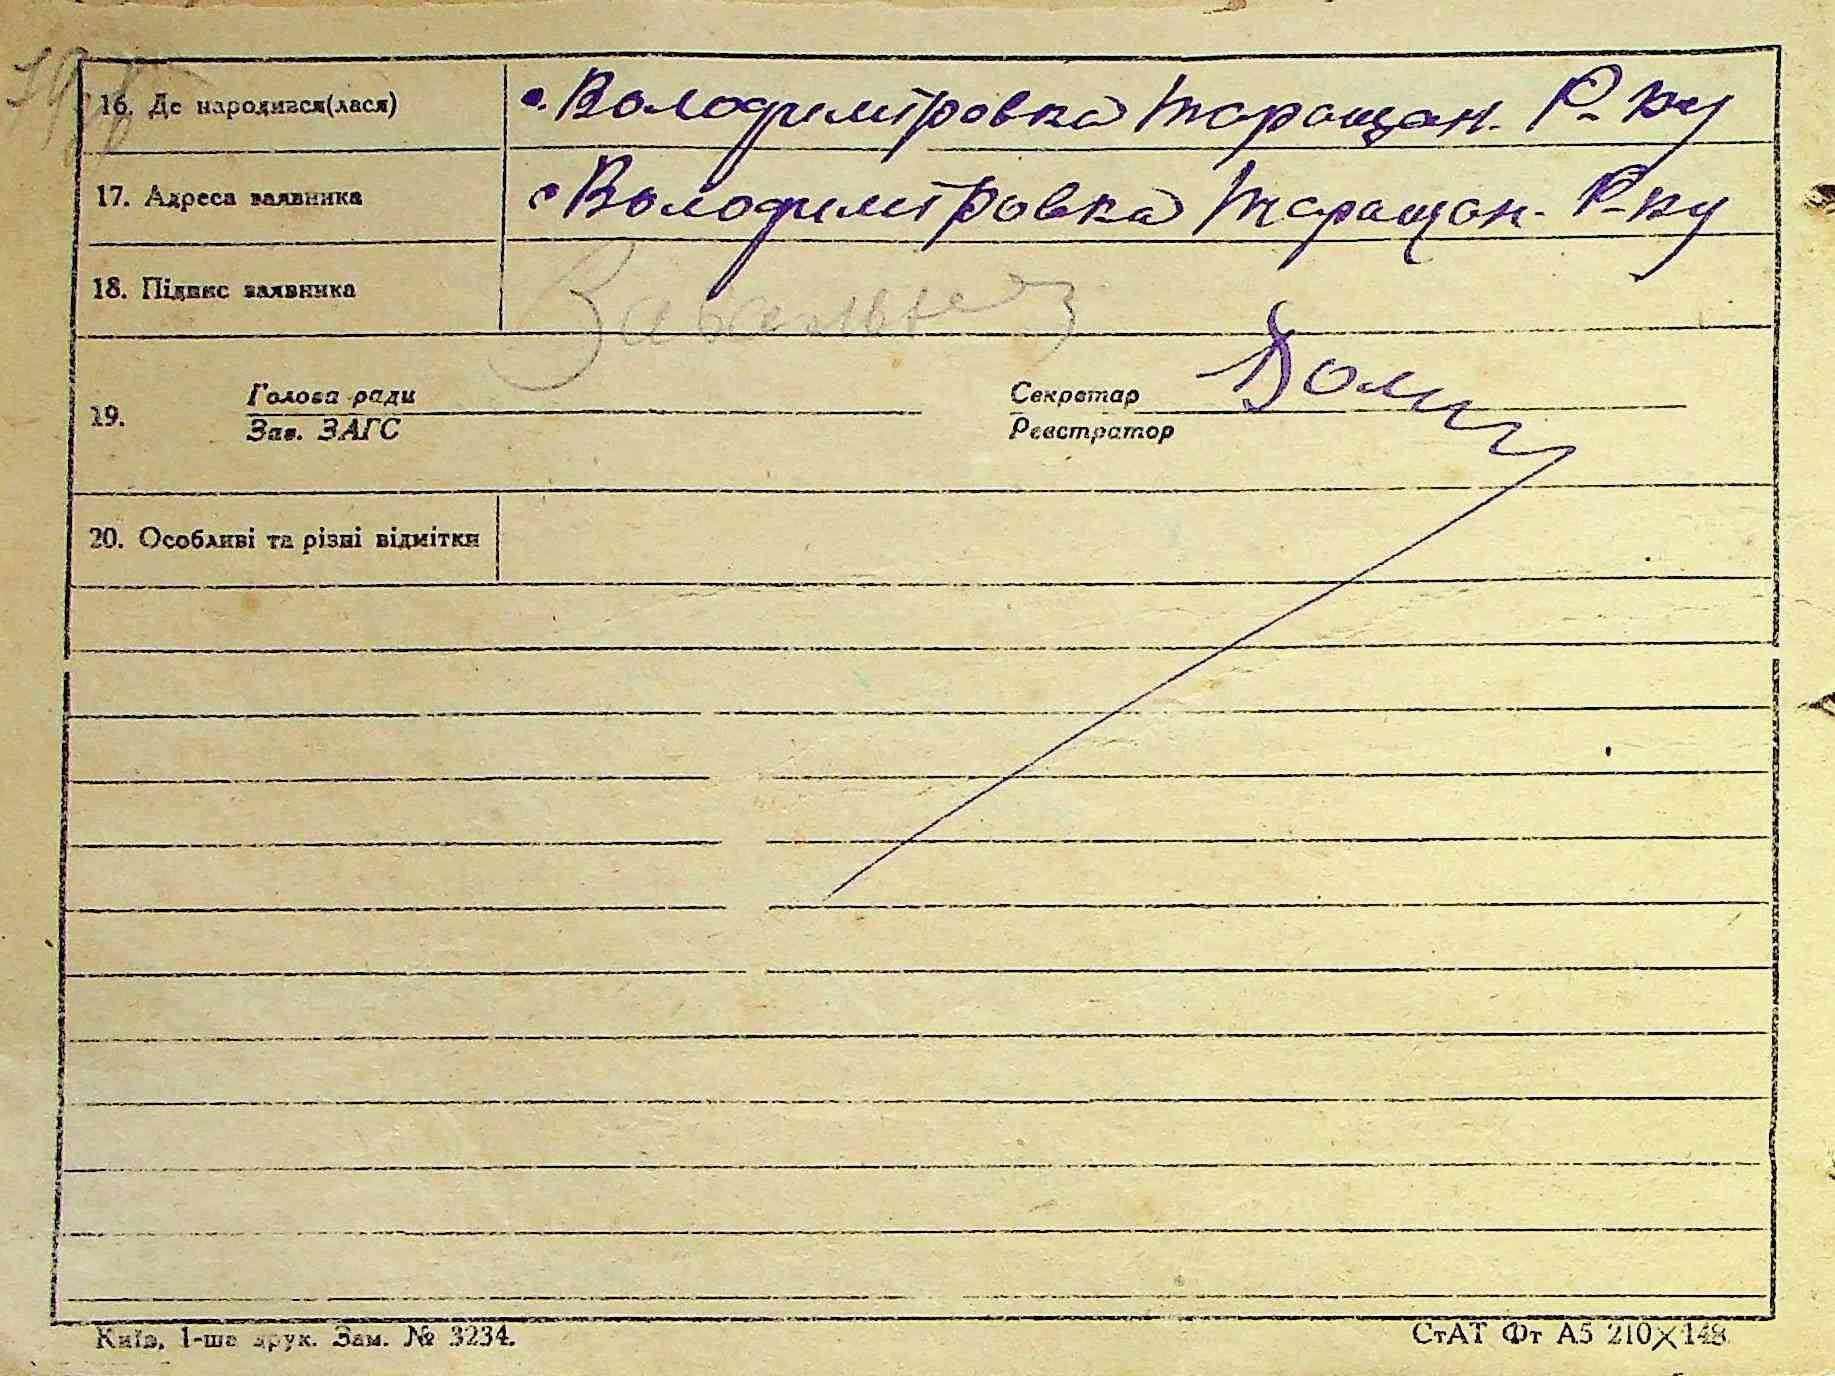 16. Де народився(лася) с. Володимировка Таращан. Р-ку
17. Адреса заявника с Володимировка Таращан. Р-ку
18. Підпис заявника
Голова ради Секретар
19.
Зав. ЗАГС Реєстратор
20. Особливі та різні відмітки
Київ, 1-ша друк. Зам. № 3234. СтАТ Фт А5 210×148